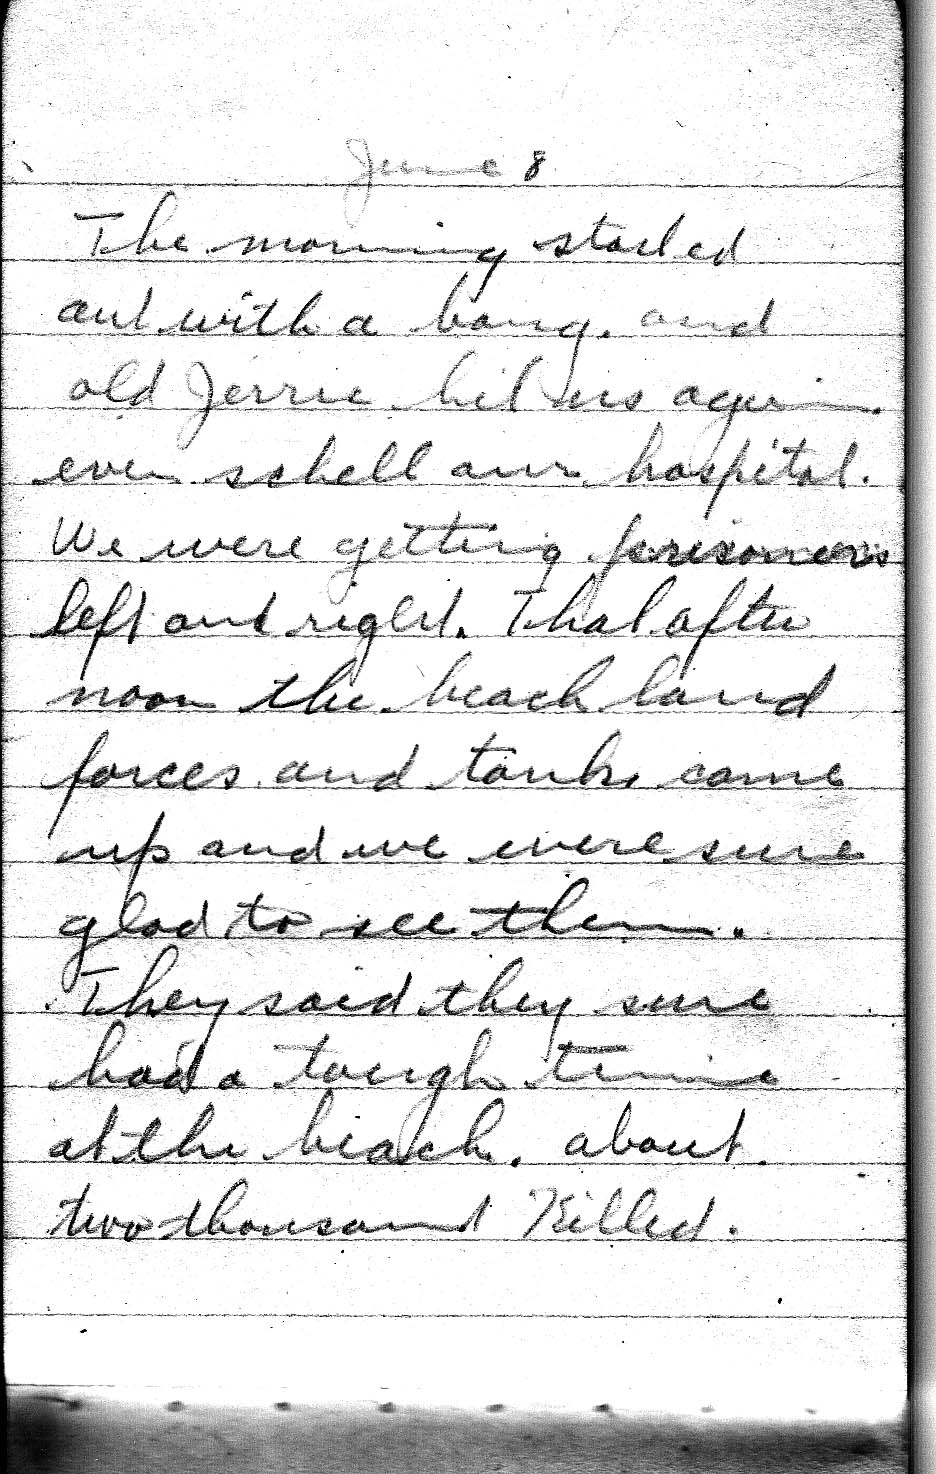 June 8
The morning started
out with a bang. and
old Jerrie hit us again.
even schell our hospital.
We were getting prisoners
left and right. That after
noon the beach land
forces and tanks came
up and we were sure
glad to see them.
They said they sure
had a tough time
at the beach. about
two thousand Killed.